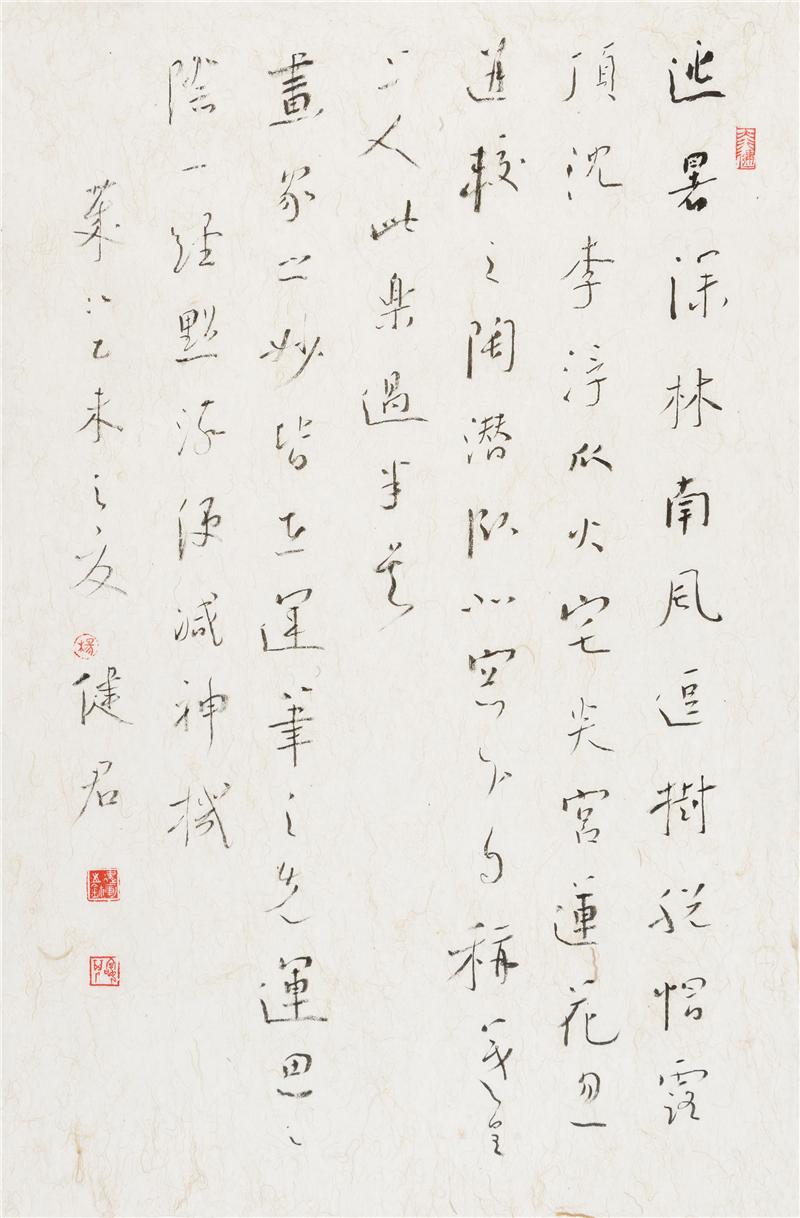 逃暑深林南風逗樹脱帽露
頂沈李浮瓜火宅炎宮蓮花忽
迸較之陶潜臥北窗下自稱羲皇
上人此楽過半矣
畫家之妙皆在運筆之先運思之
際一經點染便減神機
乙未之夏
楊
健君